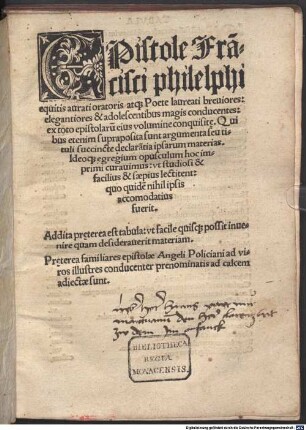 EPistole Frā
cisci philelphi
equitis aurati oratoris atqȝ Poete laureati breuiores:
elegantiores & adolescentibus magis conducentes:
ex toto epistolarū eius volumine conquisite. Qui
bus etenim supraposita sunt argumenta seu ti
tuli succincte declarātia ipsarum materias.
Ideoqȝ egregium opusculum hoc im
primi curauimus: vt studiosi &
facilius & sæpius lectitent:
quo quidē nihil ipsis
accomodatius
fuerit.
Addita preterea est tabula: vt facile quisqȝ possit inue
nire quam desiderauerit materiam.
Preterea familiares epistolæ Angeli Policiani ad vi
ros illustres conducenter prenominatis ad calcem
adiectæ sunt.
BIBLIOTHECA
REGIA
MONACENSIS.